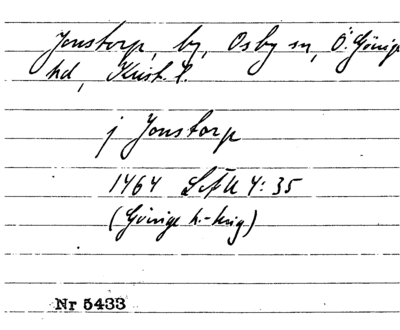 Jonstorp, by, Osby sn, Ö. Göinge
hd, Krist. l.
j Jonstorp
1464 LÄU 4:35
(Göinge h.-krig)
Nr 5433